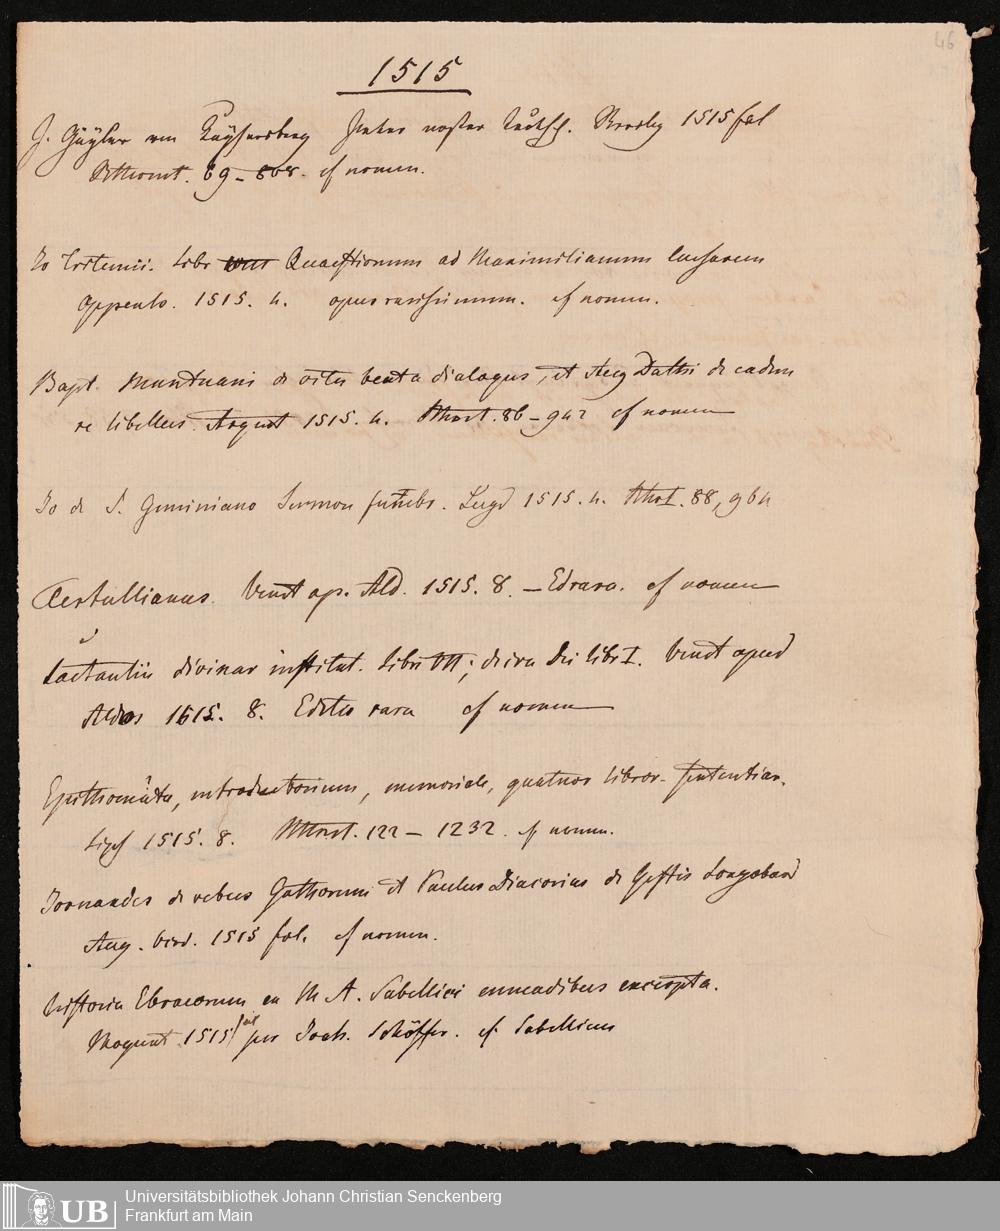 46
1515
J. Gäyler von Käysersberg Pater noster 1515 fol
69 - 808. cf nomen.
Jo Tritemii. Libr Quaestionum ad Maximilianum Caesarem
Oppenh. 1515. 4. opus rarissimum. cf nomen.
Bapt. Mantuani de vita beata dialogus, et Aug Dathi de eadem
re libellus. August 1515. 4. 86 - 942 cf nomen
Jo de S. Geminiano Sermon funebr. Lugd 1515. 4. 88, 964
Tertullianus. Venet ap. Ald. 1515. 8. - Ed rara. cf nomen
Lactantii divinar institut. Libri VII; de ira Dei libr I. Venet apud
Aldos 1515. 8. Editio rara cf nomen
Epithomata, introductorium, memoriale, quatuor libror. sententiar.
Lips 1515. 8. 122 - 1232. cf nomen.
Jornandes de rebus Gothorum et Paulus Diaconus de Gestis Longobard
Aug. Vind. 1515 fol. cf nomen.
Historia Ebraeorum ex M A. Sabellici enneadibus excerpta.
Mogunt 1515 per Joch. Schöffer. cf. Sabellicus
UB Universitätsbibliothek Johann Christian Senckenberg
Frankfurt am Main